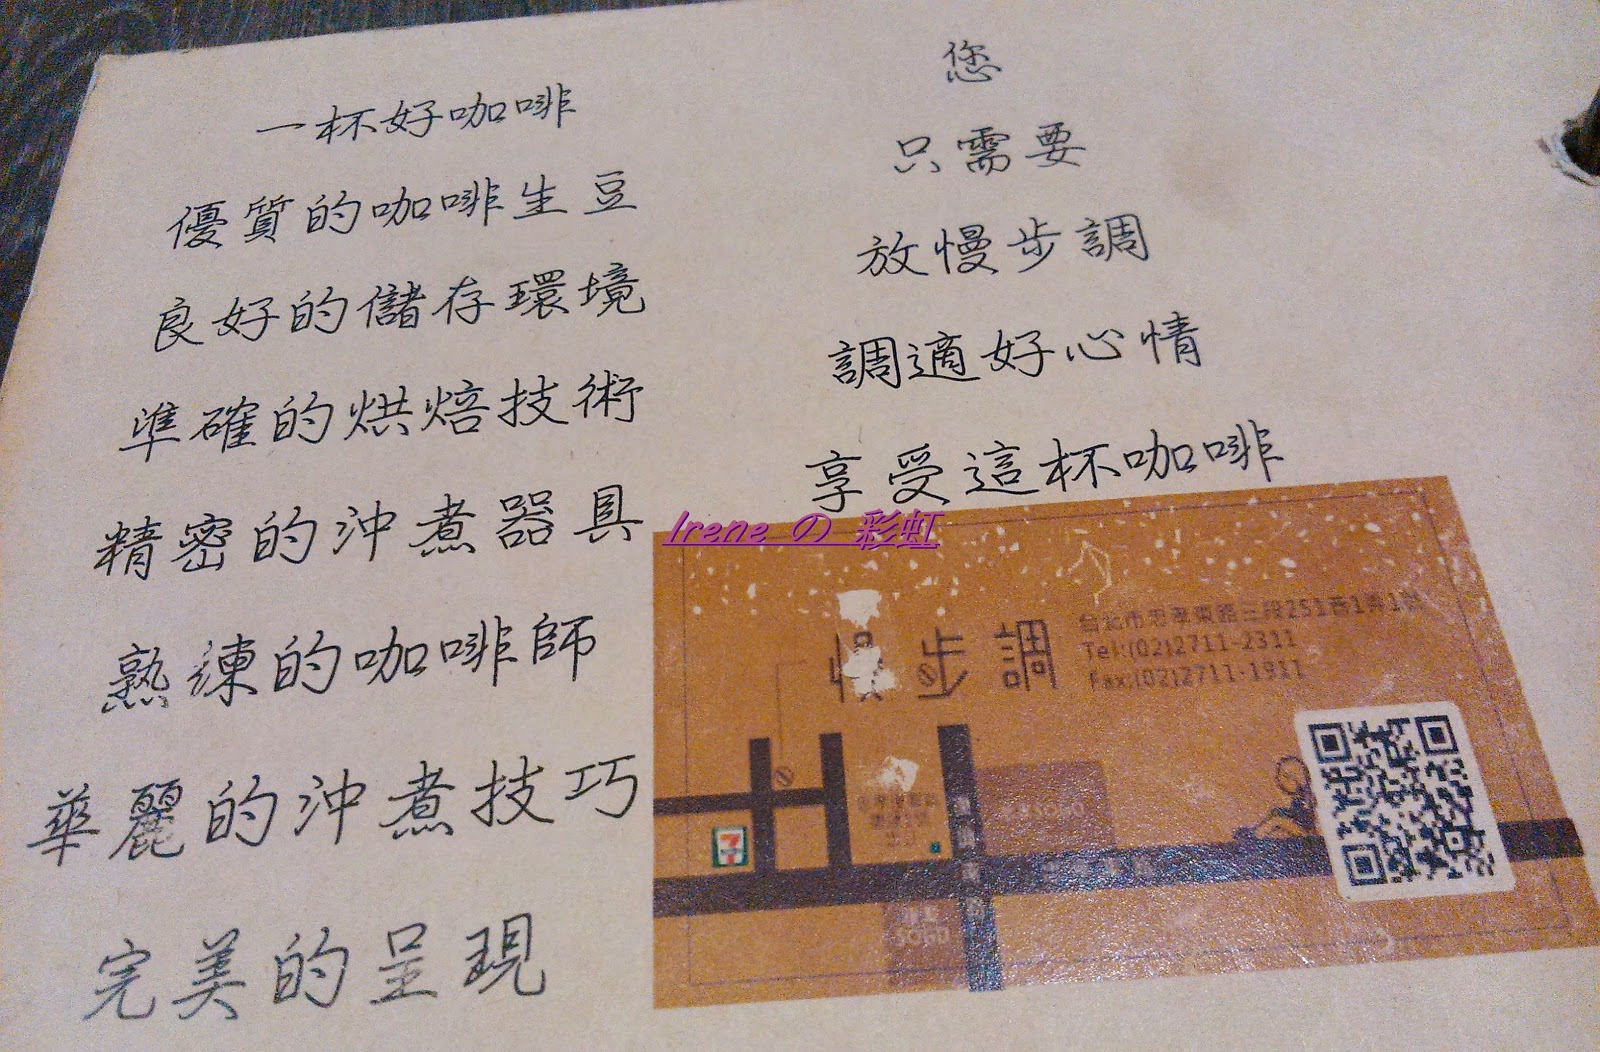 一杯好咖啡
優質的咖啡生豆
良好的儲存環境
準確的烘焙技術
精密的沖煮器具
熟練的咖啡師
華麗的沖煮技巧
完美的呈現
您
只需要
放慢步調
調適好心情
享受這杯咖啡
Irene の 彩虹
慢步調
台北市忠孝東路三段251巷1弄1號
Tel:(02)2711-2311
Fax:(02)2711-1911
SOGO
7
SOGO